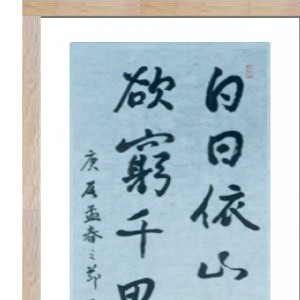 白日依山
欲窮千里
庚辰孟春之節